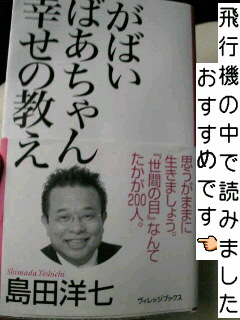 がばい
ばあちゃん
幸せの教え
思うがままに
生きましょう。
『世間の目』なんて
たかが200人。
Shimada Yoshichi
島田洋七
ヴィレッジブックス
飛行機の中で読みました
おすすめです👈